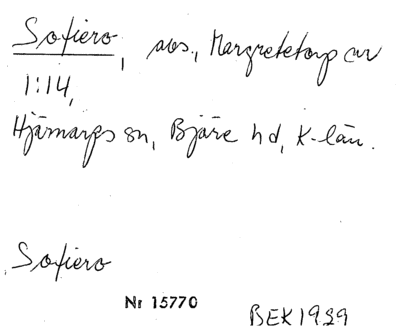 Sofiero, avs., Margretetorp av
1:14,
Hjärnarps sn, Bjäre hd, K-län.
Sofiero
Nr 15770
BEK 1939